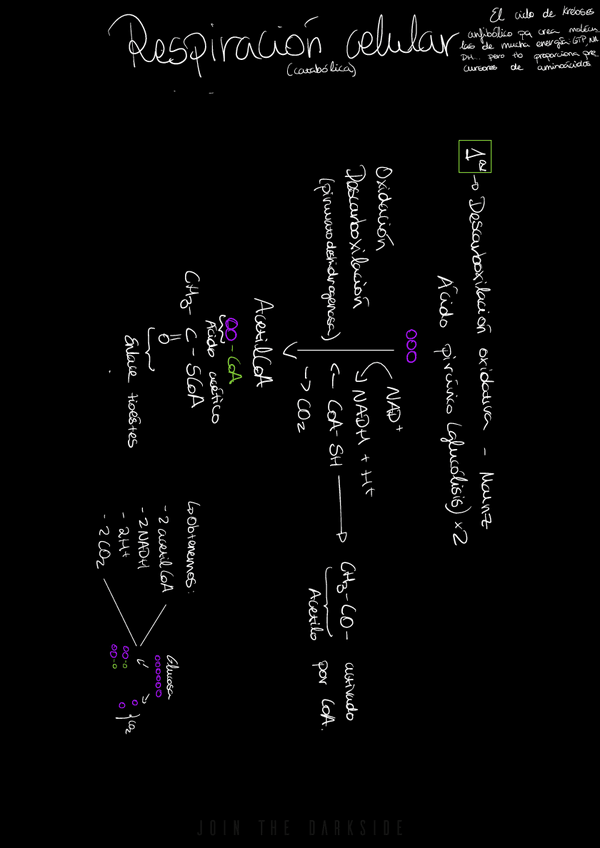 Respiración celular
(catabólica)
El ciclo de Krebs es
anfibólico pq crea molécu
las de mucha energía GTP, NA
DH... pero tb proporciona pre
cursores de aminoácidos
1er → Descarboxilación oxidativa - Matriz
Ácido pirúvico (glucólisis) x2
Oxidación
Descarboxilación
(piruvato deshidrogenasa)
NAD+
NADH + H+
← CoA-SH
→ CO2
CH3-CO- activado
Acetilo por CoA.
Acetil CoA
-CoA
Ácido acético
CH3-C-SCoA
O
Enlace tioéster
↳ Obtenemos:
- 2 acetil CoA
- 2 NADH
- 2H+
- 2 CO2
Glucosa
CO2
JOIN THE DARKSIDE